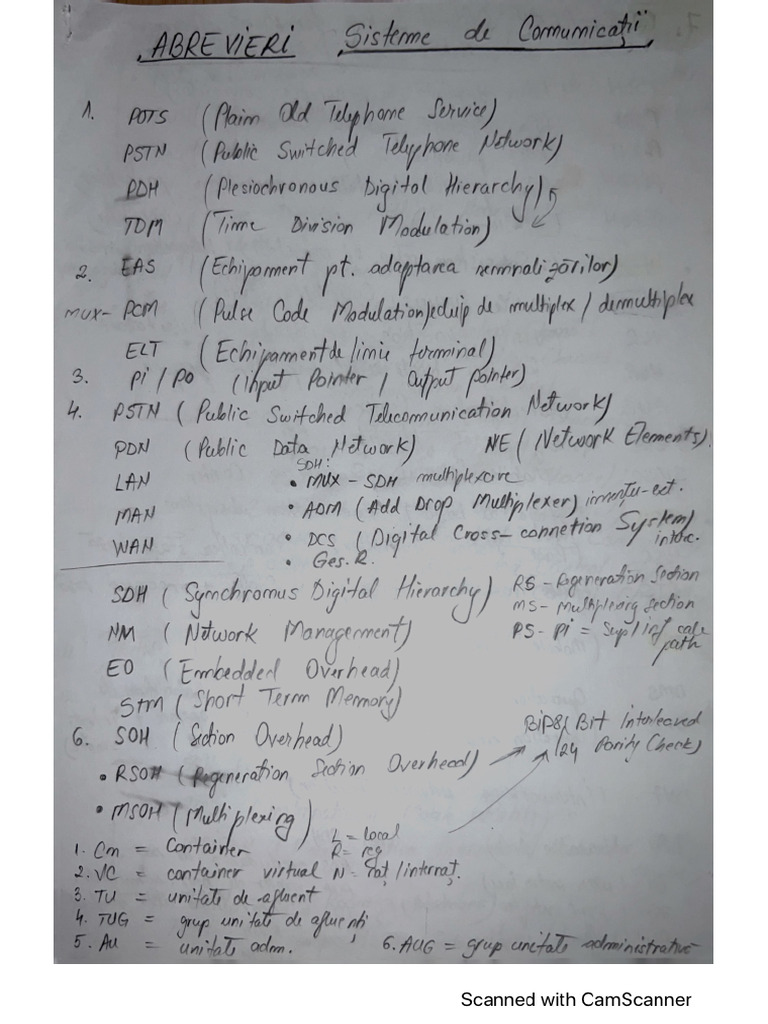 ABREVIERI Sisteme de Comunicații
1. POTS (Plain Old Telephone Service)
PSTN (Public Switched Telephone Network)
PDH (Plesiochronous Digital Hierarchy)
TDM (Time Division Modulation)
2. EAS (Echipament pt. adaptarea semnalizărilor)
MUX- PCM (Pulse Code Modulation)echip de multiplex / demultiplex
ELT (Echipament de linie terminal)
3. Pi / Po (input Pointer / Output pointer)
4. PSTN (Public Switched Telecomunication Network)
PDN (Public Data Network) NE (Network Elements)
SDH:
LAN • MUX - SDH multiplexare
MAN • ADM (Add Drop Multiplexer)
WAN • DCS (Digital Cross-connetion System)
• Ges. R.
SDH (Synchronus Digital Hierarchy) RS - Regeneration Section
MS - Multiplexing section
NM (Network Management) PS - Pi = path
EO (Embedded Overhead)
STM (Short Term Memory)
6. SOH (Section Overhead) BiP8/ Bit Interleaved
• RSOH (Regeneration Section Overhead) /24 Parity Check)
• MSOH (Multiplexing)
L = local
1. Cn = Container R = reg
2. VC = container virtual N = naț/internaț.
3. TU = unitate de afluent
4. TUG = grup unitate de afluenți
5. Au = unitate adm. 6. AUG = grup unitate administrative
Scanned with CamScanner